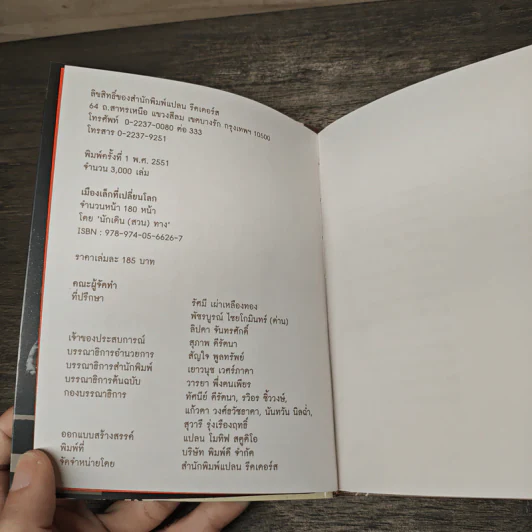 ลิขสิทธิ์ของสำนักพิมพ์แปลน รีดเดอร์ส
64 ถ.สาทรเหนือ แขวงสีลม เขตบางรัก กรุงเทพฯ 10500
โทรศัพท์ 0-2237-0080 ต่อ 333
โทรสาร 0-2237-9251
พิมพ์ครั้งที่ 1 พ.ศ. 2551
จำนวน 3,000 เล่ม
เมืองเล็กที่เปลี่ยนโลก
จำนวนหน้า 180 หน้า
โดย 'นักเดิน (สวน) ทาง'
ISBN : 978-974-05-6626-7
ราคาเล่มละ 185 บาท
คณะผู้จัดทำ
ที่ปรึกษา รัศมี เผ่าเหลืองทอง
พัชรบูรณ์ ไชยโกมินทร์ (ด่าน)
ลิปดา จันทรศักดิ์
เจ้าของประสบการณ์ สุภาพ ดีรัตนา
บรรณาธิการอำนวยการ สัญใจ พูลทรัพย์
บรรณาธิการสำนักพิมพ์ เยาวนุช เวศร์ภาดา
บรรณาธิการต้นฉบับ วารยา พึ่งตนเพียร
กองบรรณาธิการ ทัศนีย์ ดีรัตนา, รวิอร ซิ้ววงษ์,
แก้วตา วงศ์ธวัชธาดา, นันทวัน นิลฉ่ำ,
สุวารี รุ่งเรืองฤทธิ์
ออกแบบสร้างสรรค์ แปลน โมทิฟ สตูดิโอ
พิมพ์ที่ บริษัท พิมพ์ดี จำกัด
จัดจำหน่ายโดย สำนักพิมพ์แปลน รีดเดอร์ส